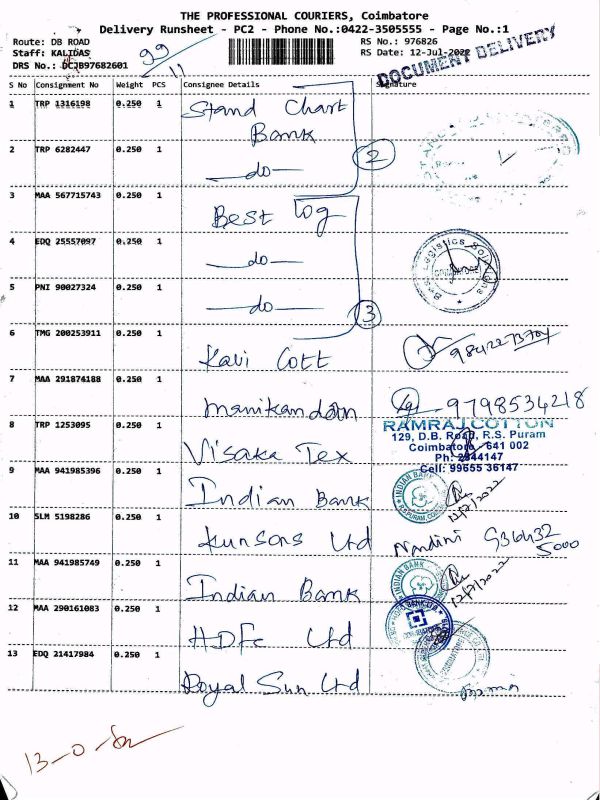 THE PROFESSIONAL COURIERS, Coimbatore
Delivery Runsheet - PC2 - Phone No.:0422-3505555 - Page No.:1
Route: DB ROAD
RS No.: 976826
Staff: KALIDAS
RS Date: 12-Jul-2022
DRS No.: DCJB97682601
99
11
DOCUMENT DELIVERY
S No Consignment No Weight PCS Consignee Details Signature
1 TRP 1316198 0.250 1 Stand Chart
Bank
2 TRP 6282447 0.250 1 —do—
2
3 MAA 567715743 0.250 1 Best log
4 EDQ 25557097 0.250 1 —do—
5 PNI 90027324 0.250 1 —do—
3
6 TMG 200253911 0.250 1 Kavi Cott
7 MAA 291874188 0.250 1 Manikandan 9798534218
RAMRAJ COTTON
129, D.B. Road, R.S. Puram
Coimbatore 641 002
Ph: 2544147
Cell: 99655 36147
8 TRP 1253095 0.250 1 Visaka Tex
9 MAA 941985396 0.250 1 Indian Bank INDIAN BANK 12/7/2022
10 SLM 5198286 0.250 1 Kunsons Ltd Nandini
11 MAA 941985749 0.250 1 Indian Bank INDIAN BANK 12/7/2022
12 MAA 290161083 0.250 1 HDFC Ltd
13 EDQ 21417984 0.250 1 Royal Sun Ltd